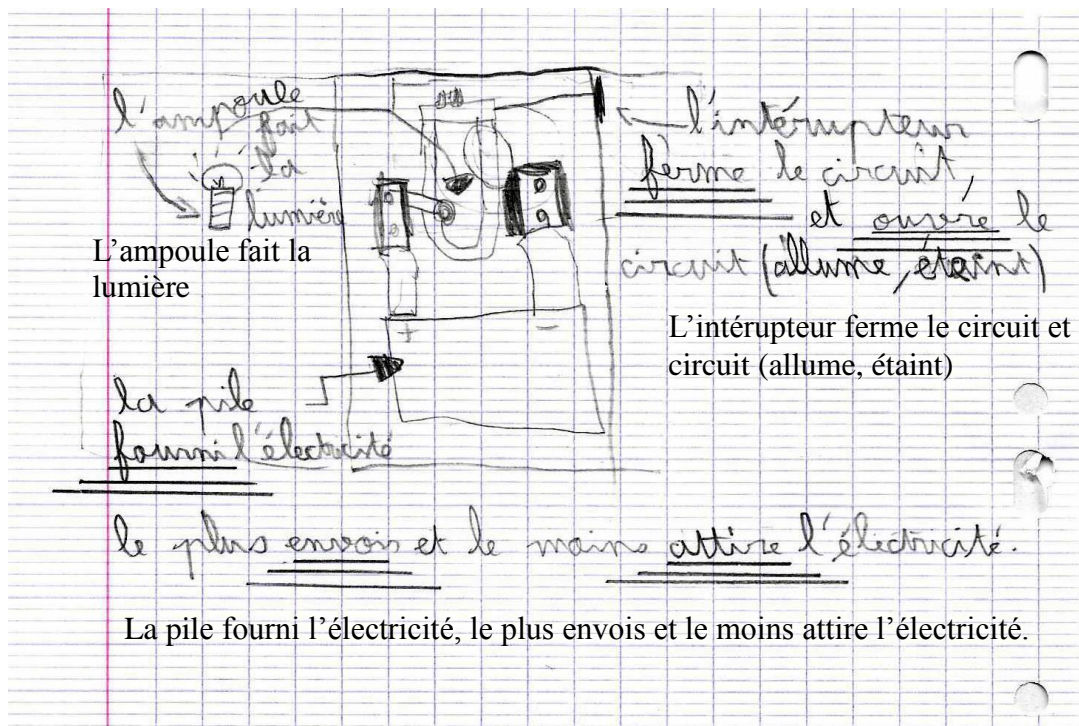 l'ampoule
fait
la
lumière
L'ampoule fait la
lumière
l'intérupteur
ferme le circuit,
et ouvre le
circuit (allume, étaint)
L'intérupteur ferme le circuit et
circuit (allume, étaint)
+ −
la pile
fourni l'électricité
le plus envois et le moins attire l'électricité.
La pile fourni l'électricité, le plus envois et le moins attire l'électricité.